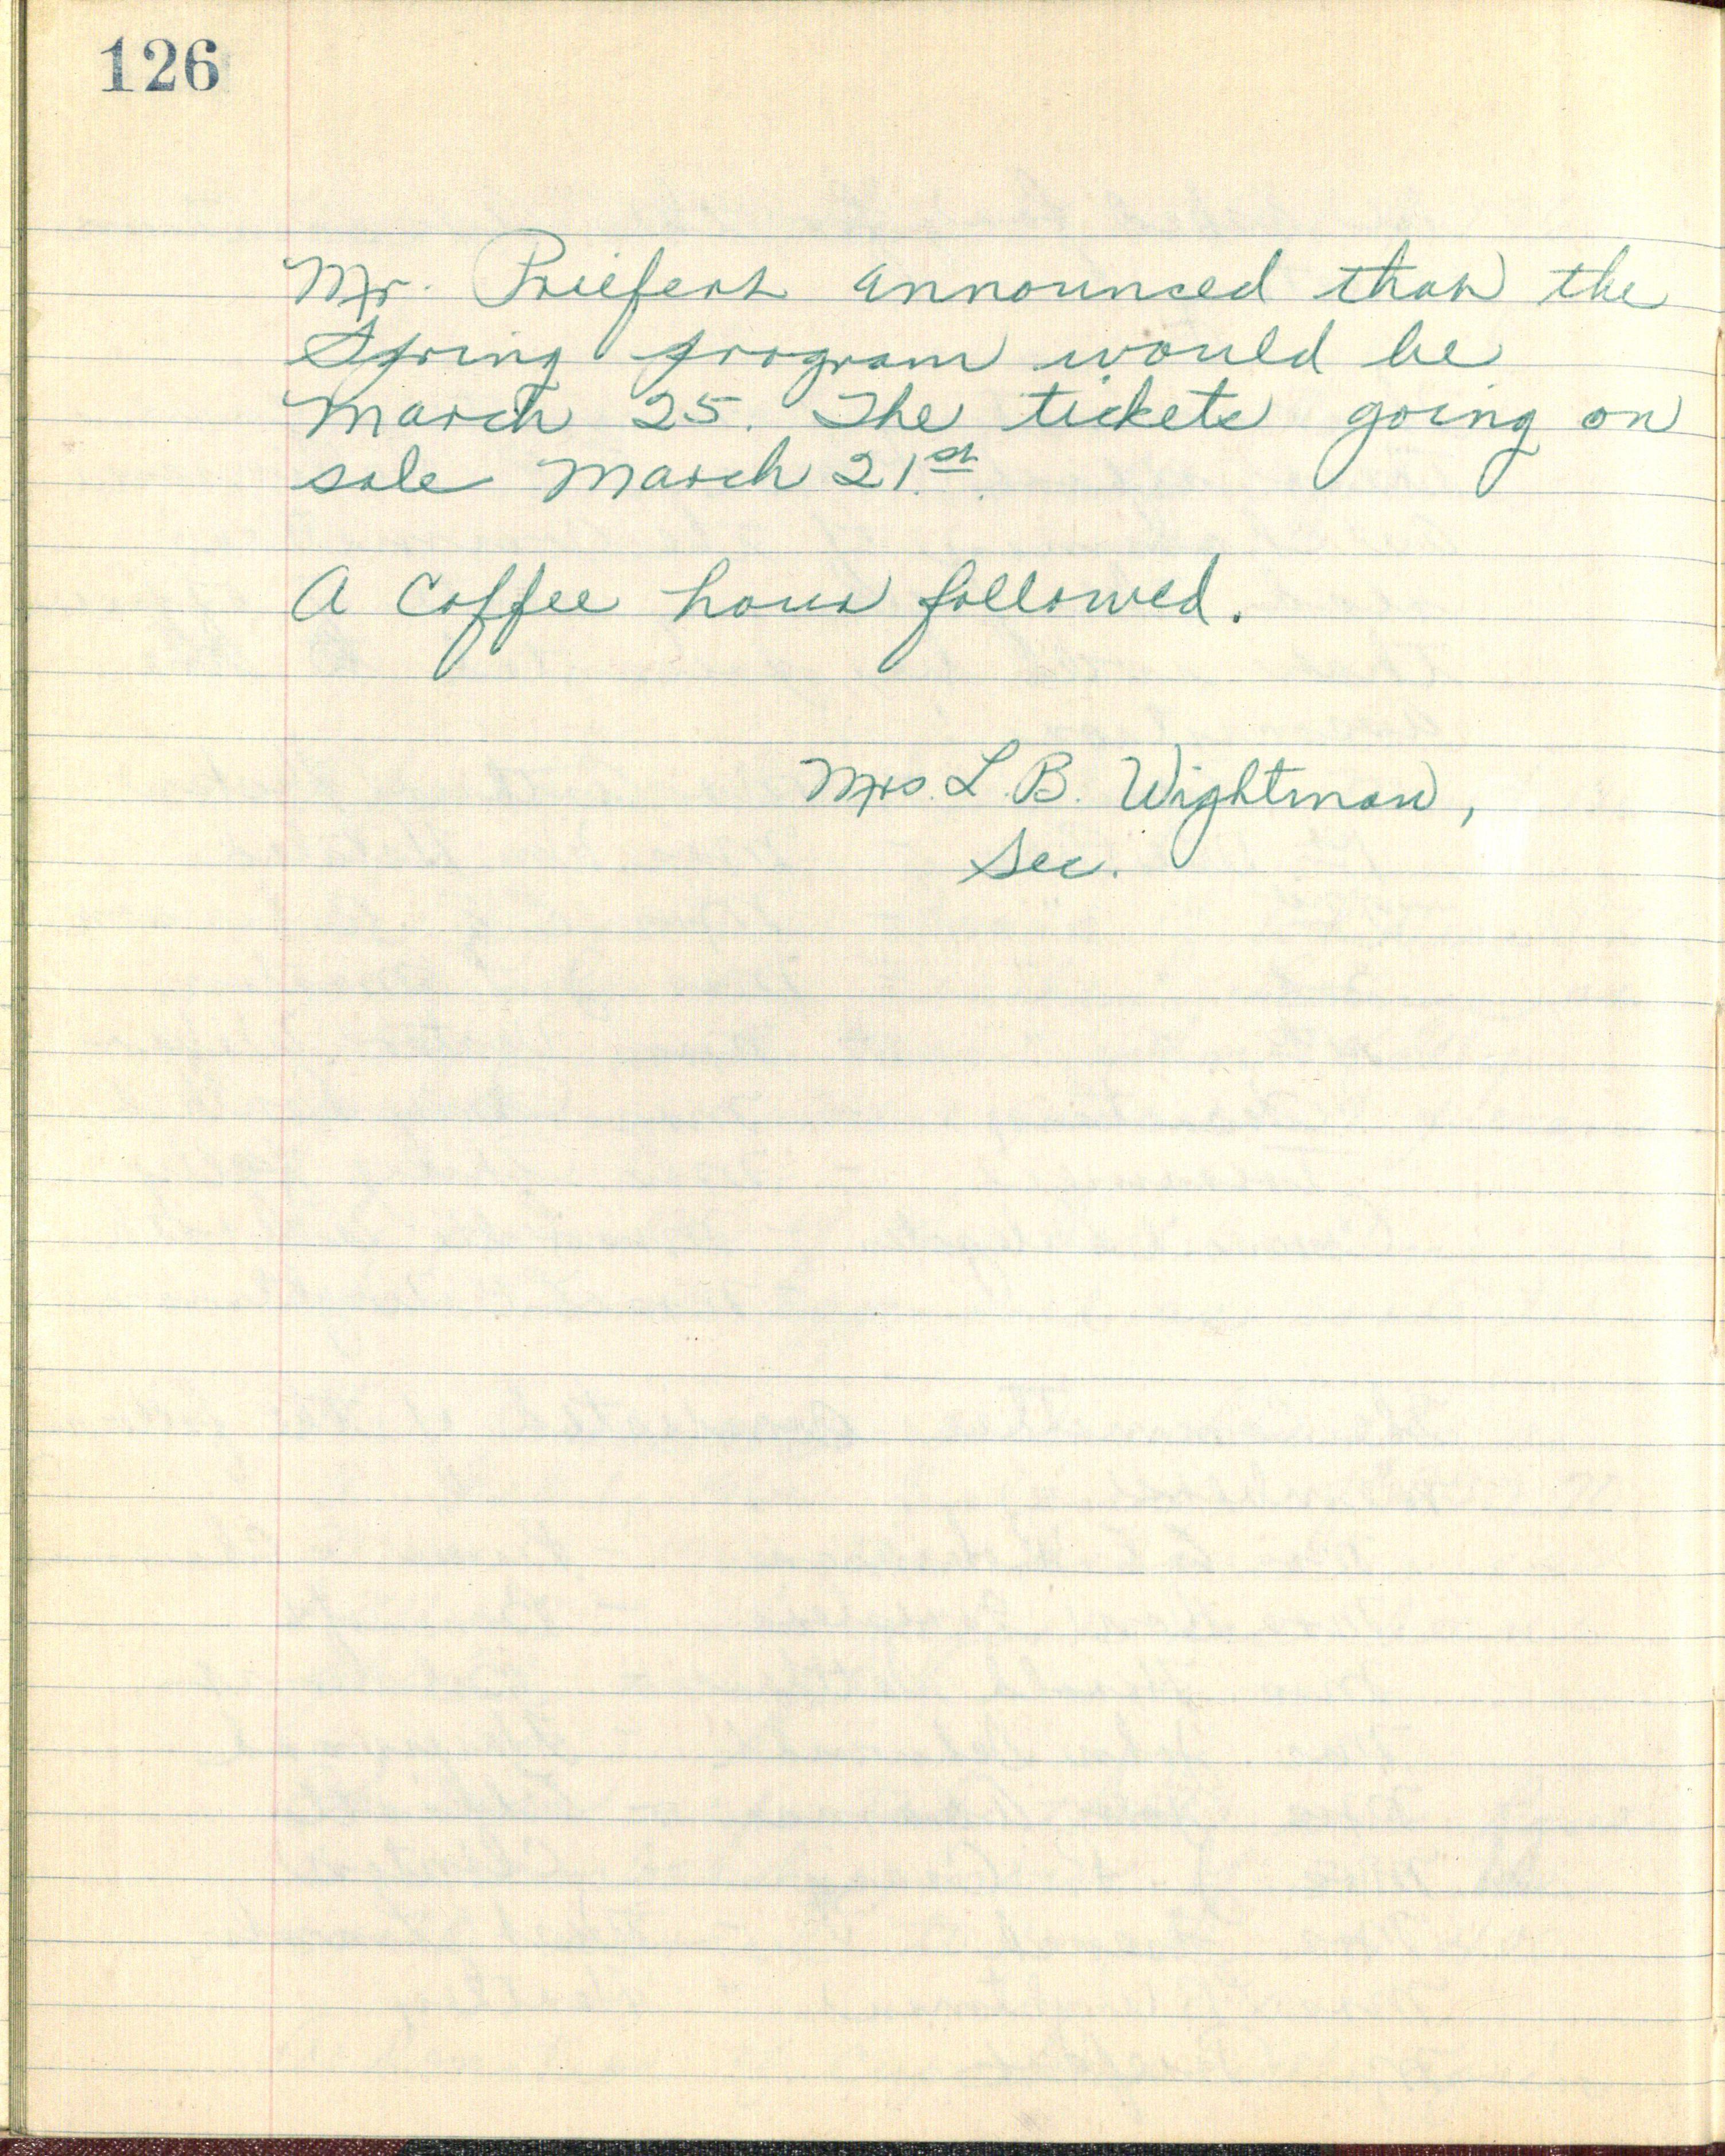 126
Mr. Priefert announced that the
Spring program would be
March 25. The tickets going on
sale March 21st.
A Coffee hour followed.
Mrs. L. B. Wightman,
Sec.